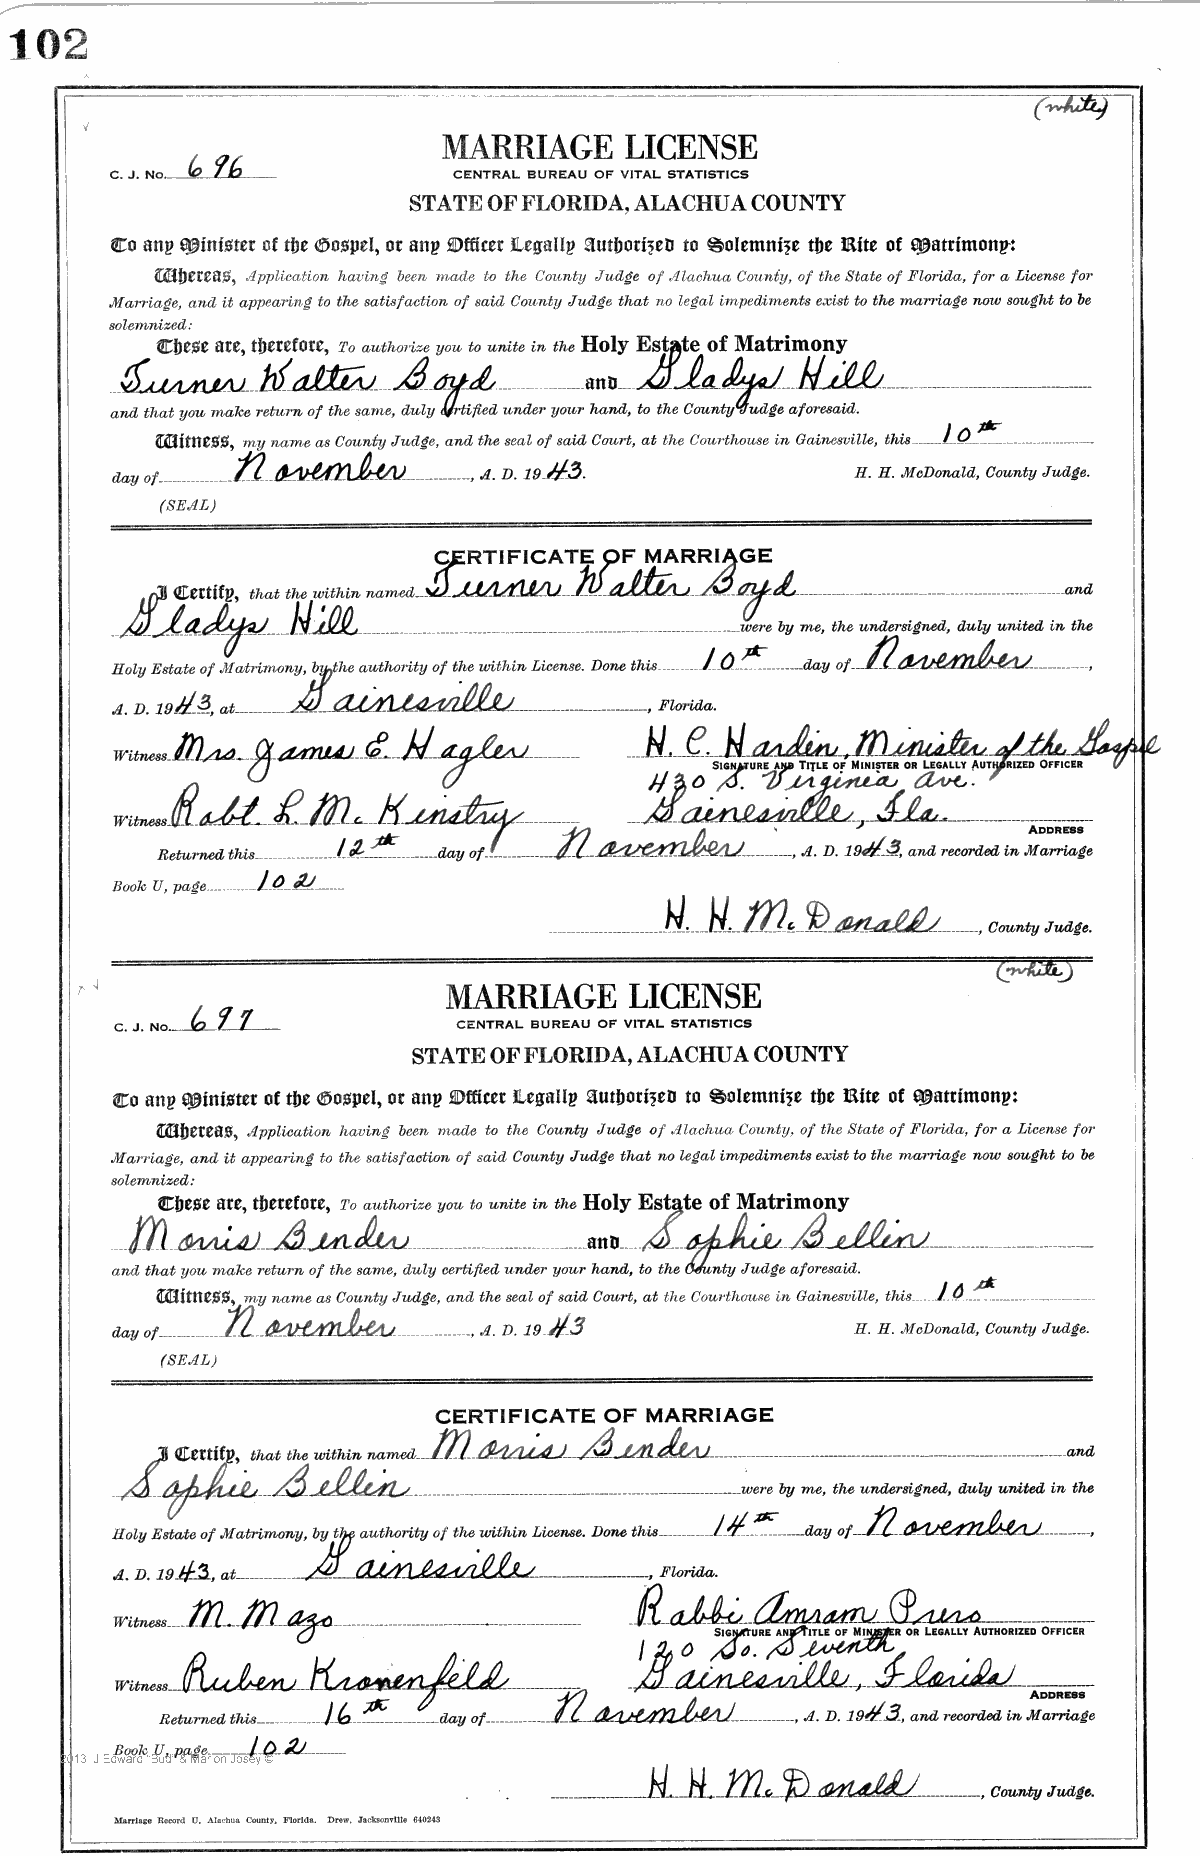 102
(white)
MARRIAGE LICENSE
C. J. No. 696
CENTRAL BUREAU OF VITAL STATISTICS
STATE OF FLORIDA, ALACHUA COUNTY
To any Minister of the Gospel, or any Officer Legally Authorized to Solemnize the Rite of Matrimony:
Whereas, Application having been made to the County Judge of Alachua County, of the State of Florida, for a License for
Marriage, and it appearing to the satisfaction of said County Judge that no legal impediments exist to the marriage now sought to be
solemnized:
These are, therefore, To authorize you to unite in the Holy Estate of Matrimony
Turner Walter Boyd and Gladys Hill
and that you make return of the same, duly certified under your hand, to the County Judge aforesaid.
Witness, my name as County Judge, and the seal of said Court, at the Courthouse in Gainesville, this 10th
day of November, A. D. 1943. H. H. McDonald, County Judge.
(SEAL)
CERTIFICATE OF MARRIAGE
I Certify, that the within named Turner Walter Boyd and
Gladys Hill were by me, the undersigned, duly united in the
Holy Estate of Matrimony, by the authority of the within License. Done this 10th day of November,
A. D. 1943, at Gainesville, Florida.
Witness Mrs. James E. Hagler H. C. Hardin, Minister of the Gospel
SIGNATURE AND TITLE OF MINISTER OR LEGALLY AUTHORIZED OFFICER
430 S. Virginia Ave.
Witness Robt. L. McKinstry Gainesville, Fla.
ADDRESS
Returned this 12th day of November, A. D. 1943, and recorded in Marriage
Book U, page 102
H. H. McDonald, County Judge.
(white)
MARRIAGE LICENSE
C. J. No. 697
CENTRAL BUREAU OF VITAL STATISTICS
STATE OF FLORIDA, ALACHUA COUNTY
To any Minister of the Gospel, or any Officer Legally Authorized to Solemnize the Rite of Matrimony:
Whereas, Application having been made to the County Judge of Alachua County, of the State of Florida, for a License for
Marriage, and it appearing to the satisfaction of said County Judge that no legal impediments exist to the marriage now sought to be
solemnized:
These are, therefore, To authorize you to unite in the Holy Estate of Matrimony
Morris Bender and Sophie Bellin
and that you make return of the same, duly certified under your hand, to the County Judge aforesaid.
Witness, my name as County Judge, and the seal of said Court, at the Courthouse in Gainesville, this 10th
day of November, A. D. 1943 H. H. McDonald, County Judge.
(SEAL)
CERTIFICATE OF MARRIAGE
I Certify, that the within named Morris Bender and
Sophie Bellin were by me, the undersigned, duly united in the
Holy Estate of Matrimony, by the authority of the within License. Done this 14th day of November,
A. D. 1943, at Gainesville, Florida.
Witness M. Mazo Rabbi Amram Prero
SIGNATURE AND TITLE OF MINISTER OR LEGALLY AUTHORIZED OFFICER
120 So. Seventh
Witness Ruben Kronenfeld Gainesville, Florida
ADDRESS
Returned this 16th day of November, A. D. 1943, and recorded in Marriage
Book U, page 102
2013 J Edward "Bud" & Marion Josey ©
H. H. McDonald, County Judge.
Marriage Record U, Alachua County, Florida. Drew, Jacksonville 640243